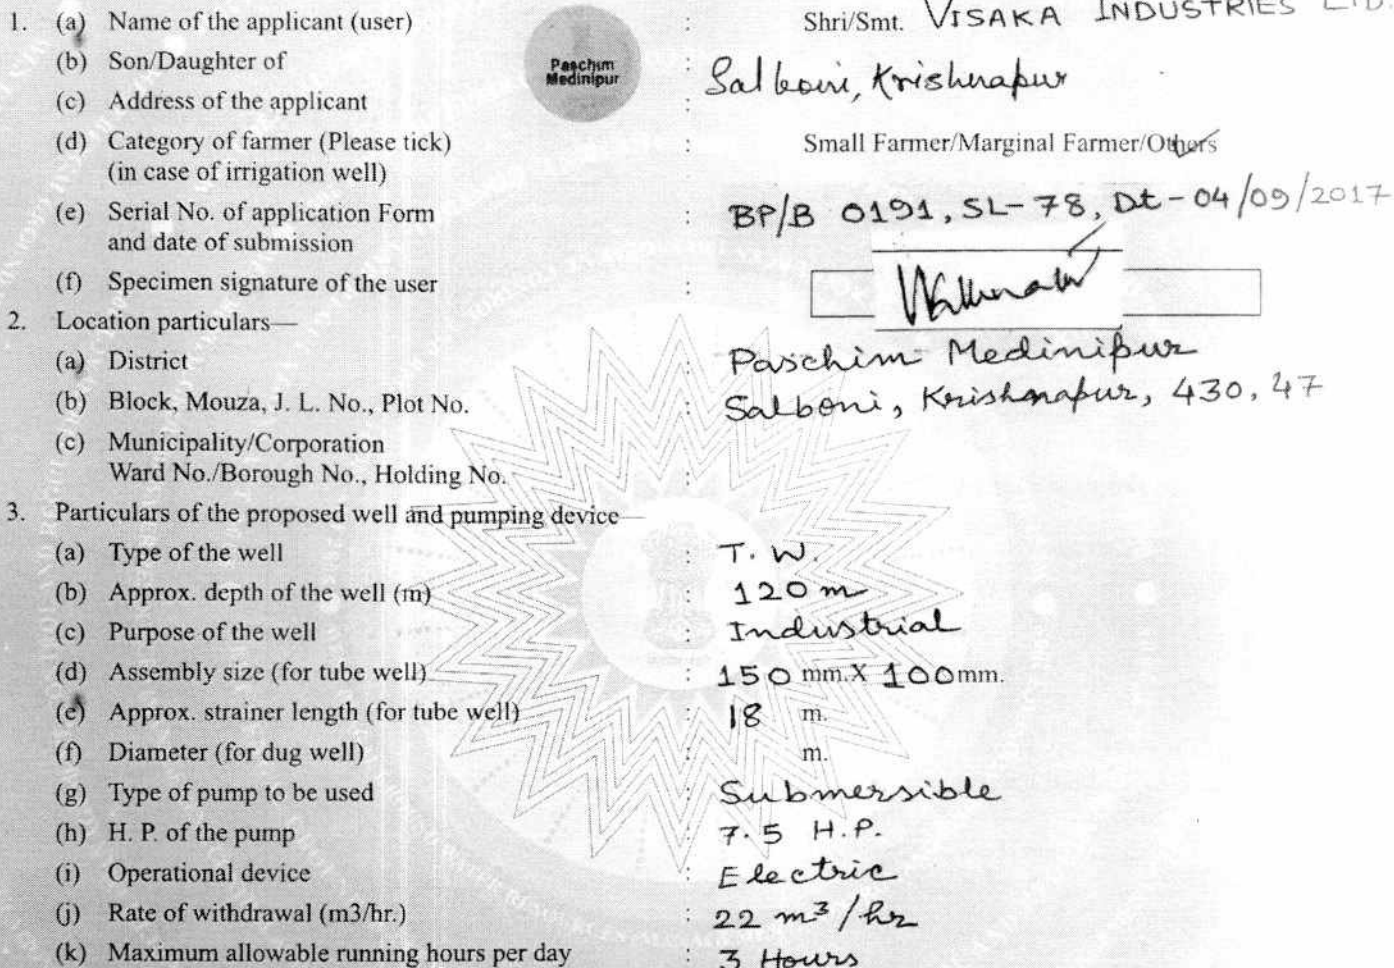 1. (a) Name of the applicant (user) : Shri/Smt. VISAKA INDUSTRIES LTD.
(b) Son/Daughter of :
Paschim
Medinipur
(c) Address of the applicant : Salboni, Krishnapur
(d) Category of farmer (Please tick) : Small Farmer/Marginal Farmer/Others
(in case of irrigation well)
(e) Serial No. of application Form : BP/B 0191, SL-78, Dt-04/09/2017
and date of submission
(f) Specimen signature of the user :
2. Location particulars—
(a) District : Paschim Medinipur
(b) Block, Mouza, J. L. No., Plot No. : Salboni, Krishnapur, 430, 47
(c) Municipality/Corporation
Ward No./Borough No., Holding No. :
3. Particulars of the proposed well and pumping device—
(a) Type of the well : T. W.
(b) Approx. depth of the well (m) : 120 m
(c) Purpose of the well : Industrial
(d) Assembly size (for tube well) : 150 mm.X 100mm.
(e) Approx. strainer length (for tube well) : 18 m.
(f) Diameter (for dug well) : m.
(g) Type of pump to be used : Submersible
(h) H. P. of the pump : 7.5 H.P.
(i) Operational device : Electric
(j) Rate of withdrawal (m3/hr.) : 22 m³/hr
(k) Maximum allowable running hours per day : 3 Hours